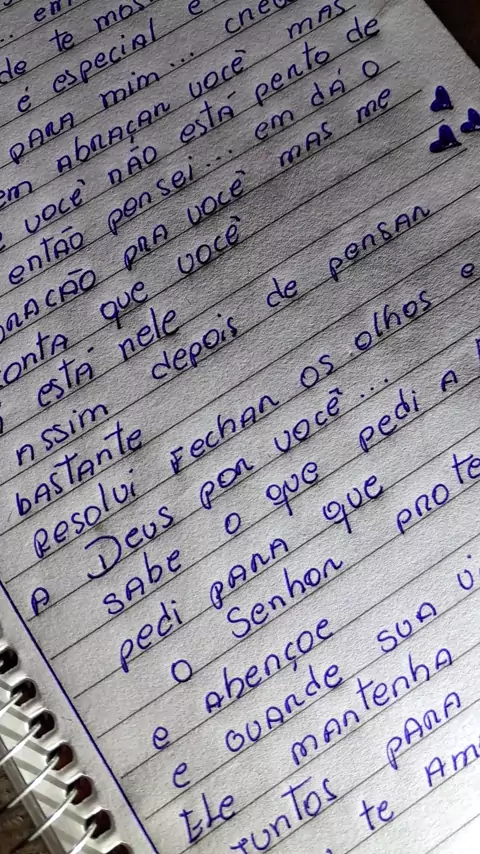 de te mos
é especial e
PARA mim... che
em ABRAÇAR você mas
e você não está perto de
então pensei... em dá o
ORAÇÃO pra você mas me
conta que você
está nele
Assim depois de pensar
bastante
Resolvi Fechar os olhos e
A Deus por você...
SABE o que pedi A
pedi PARA que
o Senhor prote
e Abençoe
e GUARDE SUA vi
e mantenha
Ele
juntos PARA
te Am